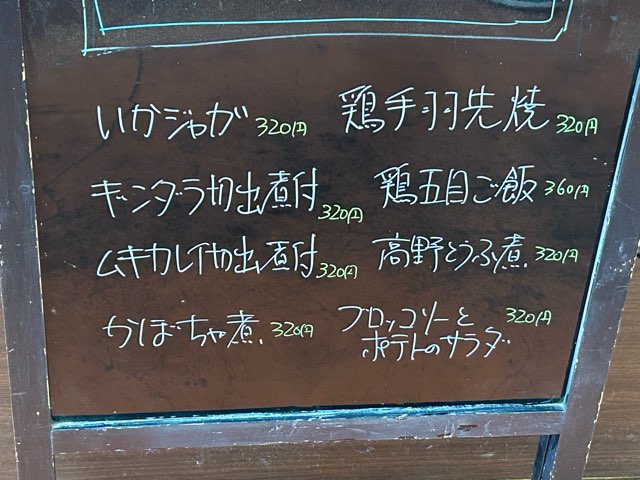 いかジャガ 320円
ギンダラ切出煮付 320円
ムキカレイ切出煮付 320円
かぼちゃ煮. 320円
鶏手羽先焼 320円
鶏五目ご飯 360円
高野とうふ煮. 320円
ブロッコリーと 320円
ポテトのサラダ